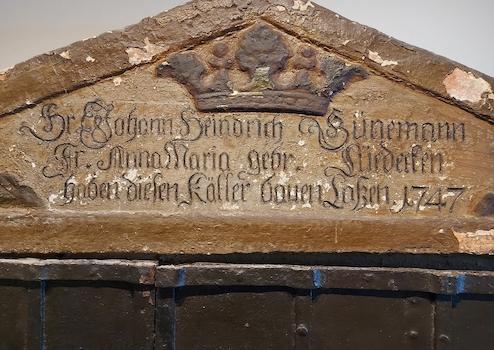 Hr Johann Heindrich Sünemann
Fr. Anna Maria gebr. Niedecken
haben diesen Kåller bauen Laßen 1747